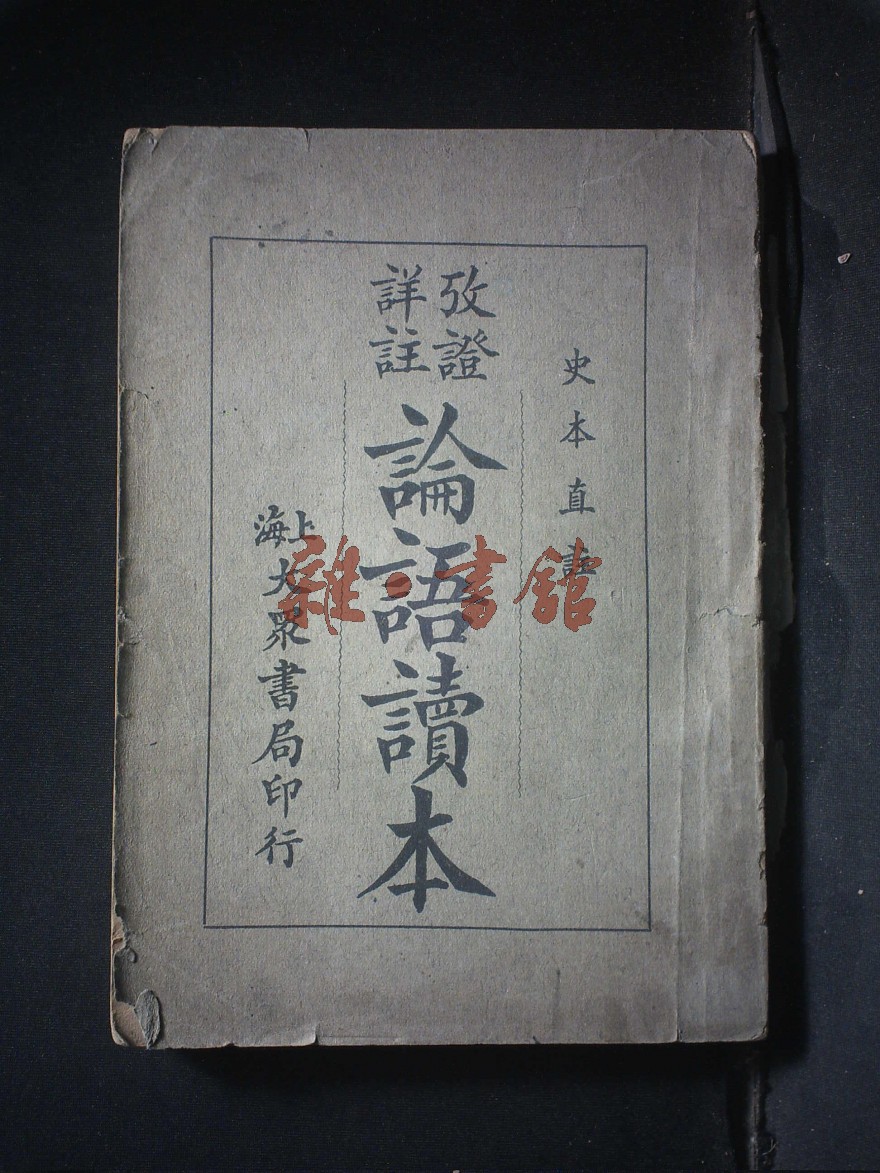 史本直
攷證
詳註
論語讀本
上海大眾書局印行
雜·書館